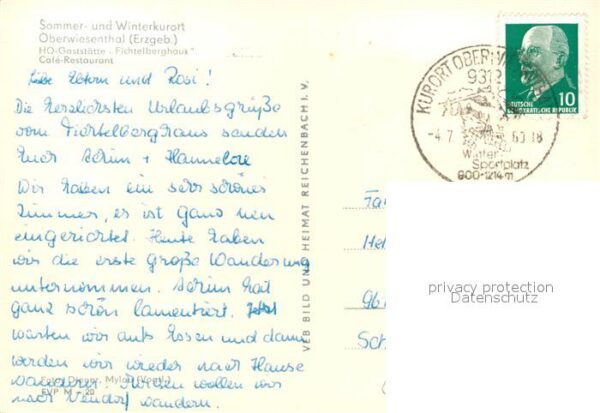 Sommer- und Winterkurort
Oberwiesenthal (Erzgeb.)
HO-Gaststätte „Fichtelberghaus"
Café-Restaurant
Liebe Eltern und Rosi!
Die herzlichsten Urlaubsgrüße
vom Fichtelberghaus senden
Euer Achim + Hannelore
Wir haben ein sehr schönes
Zimmer, es ist ganz neu
eingerichtet. Heute haben
wir die erste große Wanderung
unternommen. Achim hat
ganz schön lamentiert. Jetzt
warten wir aufs Essen und dann
werden wir wieder nach Hause
wandern. Morgen wollen wir
nach wandern.
Foto: Mylau (Vogtl.)
EVP M -20
VEB BILD UND HEIMAT REICHENBACH I. V.
KURORT OBERWIESENTHAL
9312
-4.7. 18
Winter-
Sportplatz
900-1214 m
DEUTSCHE
DEMOKRATISCHE REPUBLIK
10
Fa
He
96
Sch
privacy protection
Datenschutz